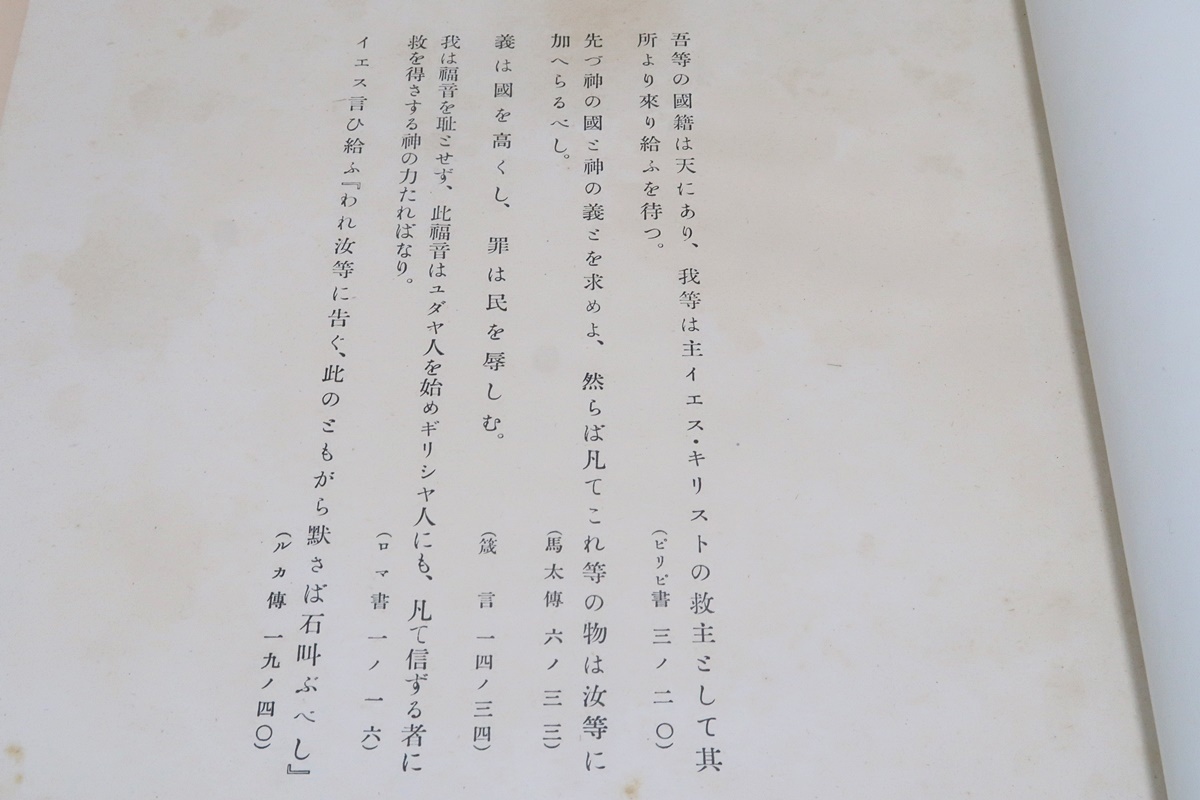 吾等の國籍は天にあり、我等は主イエス・キリストの救主として其
所より來り給ふを待つ。
(ピリピ書 三ノ二〇)
先づ神の國と神の義とを求めよ、然らば凡てこれ等の物は汝等に
加へらるべし。
(馬太傳 六ノ三三)
義は國を高くし、罪は民を辱しむ。
(箴言 一四ノ三四)
我は福音を耻とせず、此福音はユダヤ人を始めギリシヤ人にも、凡て信ずる者に
救を得さする神の力たればなり。
(ロマ書 一ノ一六)
イエス言ひ給ふ『われ汝等に告ぐ、此のともがら默さば石叫ぶべし』
(ルカ傳 一九ノ四〇)